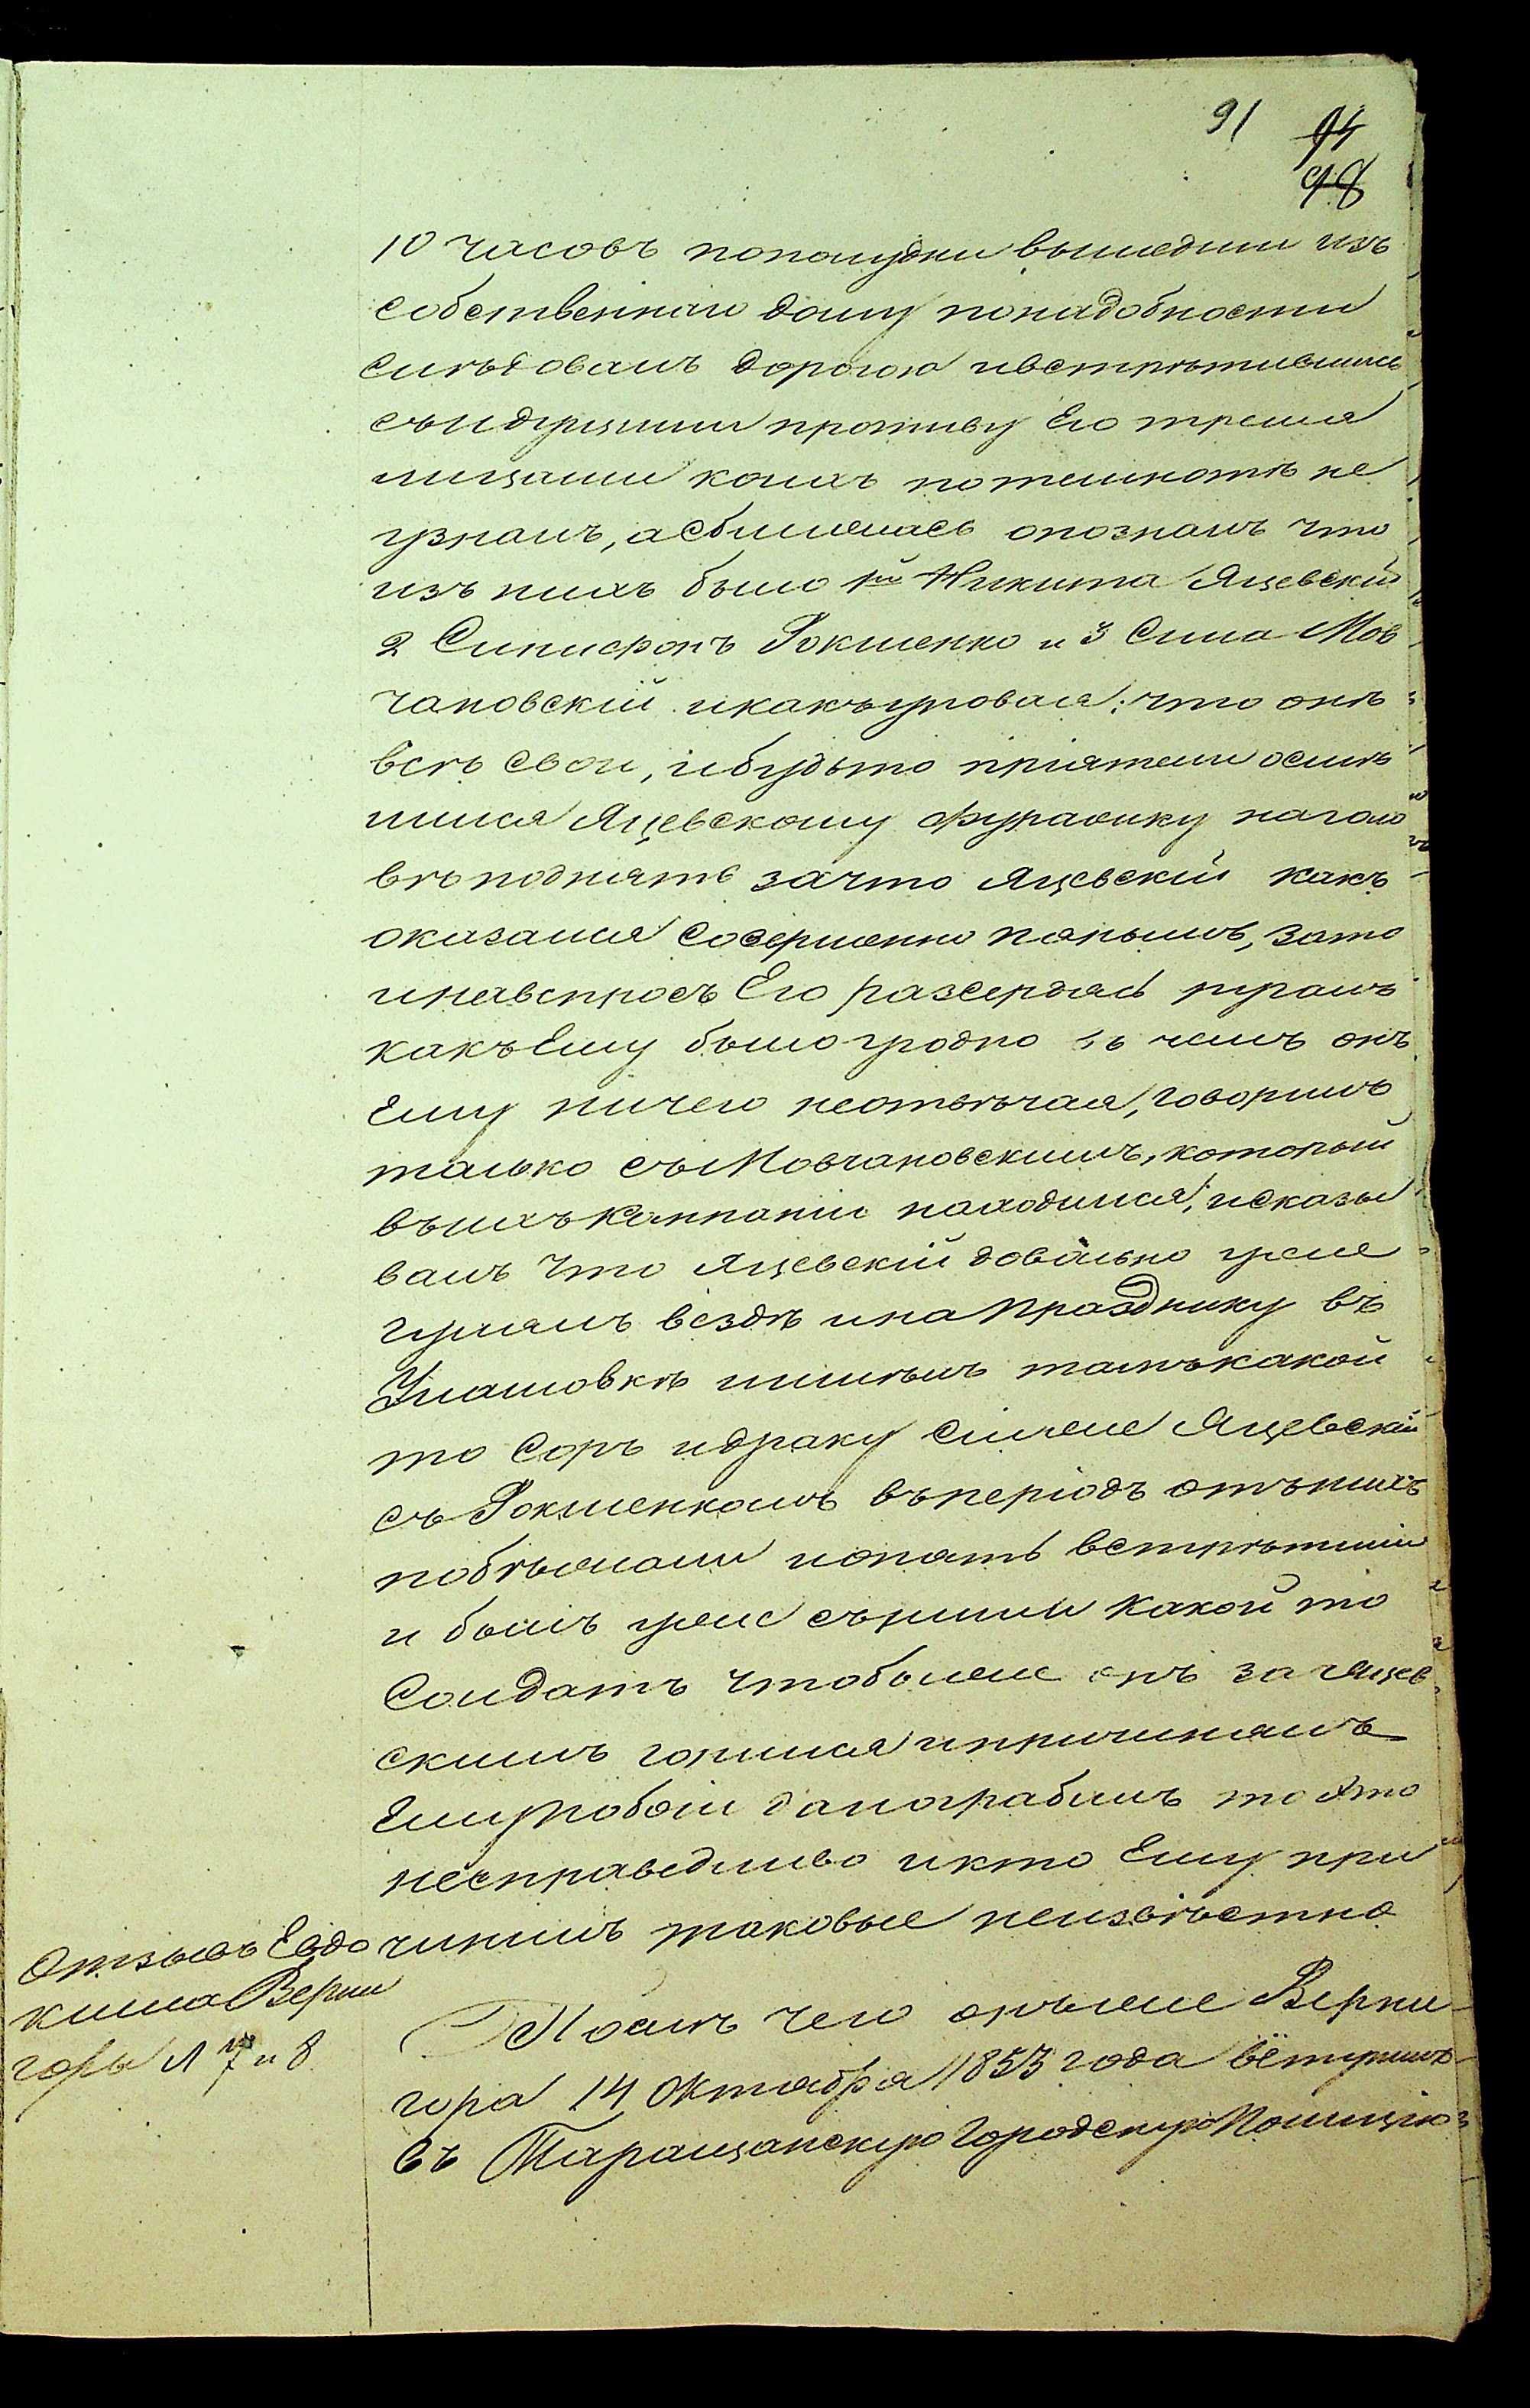 91 94
98
10 часовъ пополудни вышедши изъ
собственнаго дому понадобности
слѣдовалъ дорогою ивстрѣтившись
съидущими противу Его тремя
лицами коихъ потемнотѣ не
узналъ, асближаясь опозналъ что
изъ нихъ было 1й Никита Яцевскій
2 Спиисфонъ Рокшенко и 3 Сила Мов
чановскій икакъуповая: что онѣ
всѣ свои, ибудьто пріятели осмѣ
лился Яцевскому фуражку нагало
вѣ поднять зачто Яцевскій какъ
оказался совершенно пянымъ, зато
инавспросъ Его разсердясь ругалъ
какъЕму было угодно съ чемъ онъ
Ему ничего неотвѣчая, говорилъ
только съМовчановскимъ, который
въихъ Компаніи находился, исказы
валъ что Яцевскій довольно уже
гулялъ вездѣ инапразднику въ
Улашовкѣ имѣлъ тамъкакой
то соръ идраку сиичже Яцевскій
съ Рокшенкомъ въперіодъ отънихъ
побѣжали иопять встрѣтили
и былъ уже съними какой то
Солдатъ чтобыже онъ за Яцев
скимъ гонился ипричинялъ
Ему побои да пограбилъ то это
несправедливо икто Ему при
чинилъ таковые неизвѣстно
Отзывъ Евдо
кима Верни
горы Л 7 и 8
Послѣ чего онъже Верни
гора 14 Октября 1853 года вступилъ
въ Таращанскую Городскую Полицію